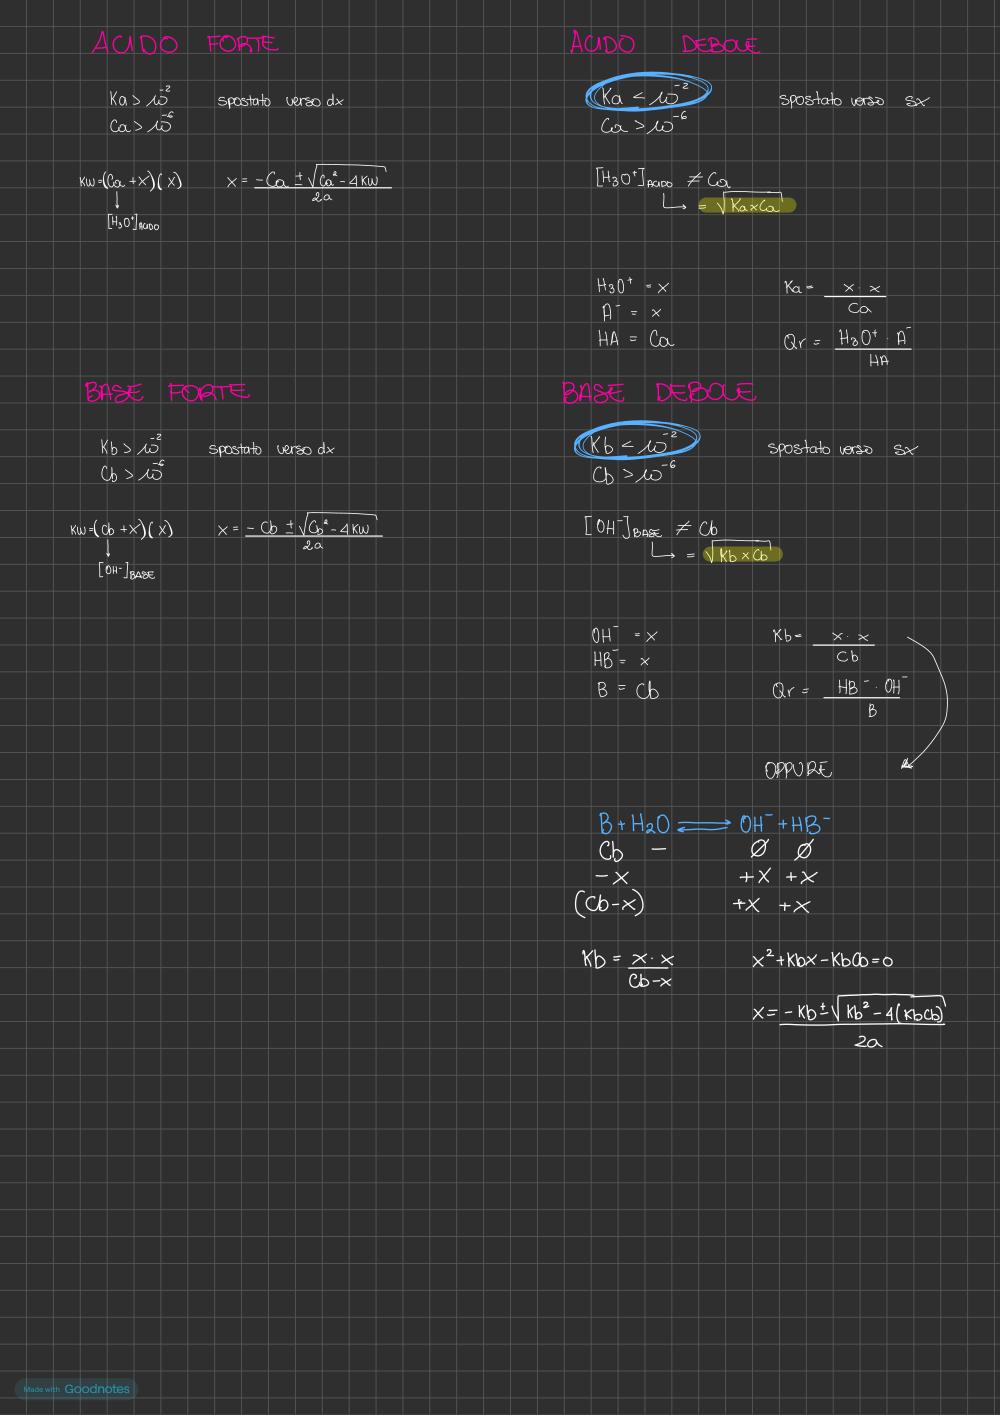 ACIDO FORTE
Ka > 10⁻² spostato verso dx
Ca > 10⁻⁶
KW=(Ca + X)(X) x = −Ca ± √Ca² − 4KW / 2a
↓
[H₃O⁺]ACIDO
ACIDO DEBOLE
Ka < 10⁻² spostato verso sx
Ca > 10⁻⁶
[H₃O⁺]ACIDO ≠ Ca
↳ = √Ka×Ca
H₃O⁺ = x Ka = x · x / Ca
A⁻ = x
HA = Ca Qr = H₃O⁺ · A⁻ / HA
BASE FORTE
Kb > 10⁻² spostato verso dx
Cb > 10⁻⁶
KW=(Cb + X)(X) x = −Cb ± √Cb² − 4KW / 2a
↓
[OH⁻]BASE
BASE DEBOLE
Kb < 10⁻² spostato verso sx
Cb > 10⁻⁶
[OH⁻]BASE ≠ Cb
↳ = √Kb × Cb
OH⁻ = x Kb = x · x / Cb
HB⁻ = x
B = Cb Qr = HB⁻ · OH⁻ / B
OPPURE
B + H₂O ⇌ OH⁻ + HB⁻
Cb − Ø Ø
−X +X +X
(Cb−x) +X +X
Kb = x · x / Cb−x x² + Kbx − KbCb = 0
x = −Kb ± √Kb² − 4(KbCb) / 2a
Made with Goodnotes